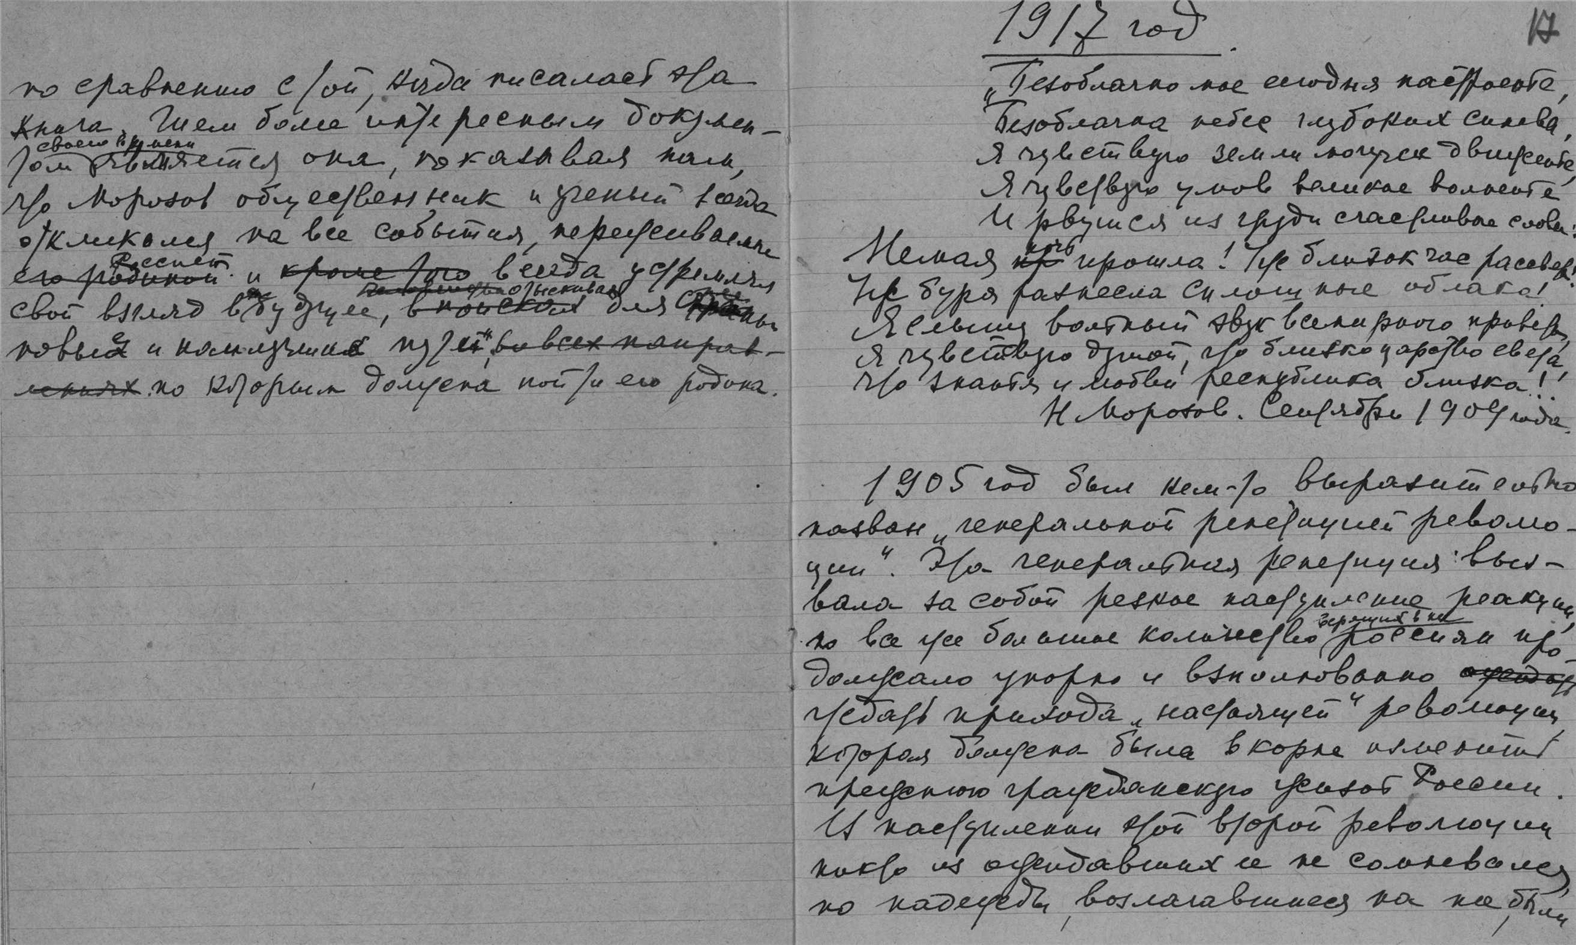 по сравнению с той, когда писалась эта
книга. Тем более интересным докумен-
своего времени
том является она, показывая нам,
что Морозов общественник и ученый всегда
откликался на все события, переживаемые
Россией
его родиной и кроме того всегда устремлял
отыскивая
свой взгляд в будущее, в поисках для
новых и наилучших путей, во всех направ-
лениях по которым должна пойти его родина.
17
1917 год.
„Безоблачно мое сегодня настроенье,
Безоблачна небес глубоких синева,
Я чувствую земли могучее движенье,
Я чувствую умов великое волненье
И рвутся из груди счастливые слова:
ночь
Немая прошла! Уж близок час рассвета!
Уж буря разнесла сплошные облака!
Я слышу вольный звук всемирного привета,
Я чувствую душой, что близко царство света,
Что знанья и любви республика близка!!
Н Морозов. Сентябрь 1909 года.
1905 год был кем-то выразительно
назван „генеральной репетицией револю-
ции“. Эта генеральная репетиция выз-
вала за собой резкое наступление реакции,
но все же большое количество россиян про-
должало упорно и взволнованно
ждать прихода „настоящей“ революции,
которая должна была в корне изменить
прежнюю гражданскую жизнь России.
И наступлении этой второй революции
никто из ожидавших ее не сомневался,
но надежды, возлагавшиеся на нее, были